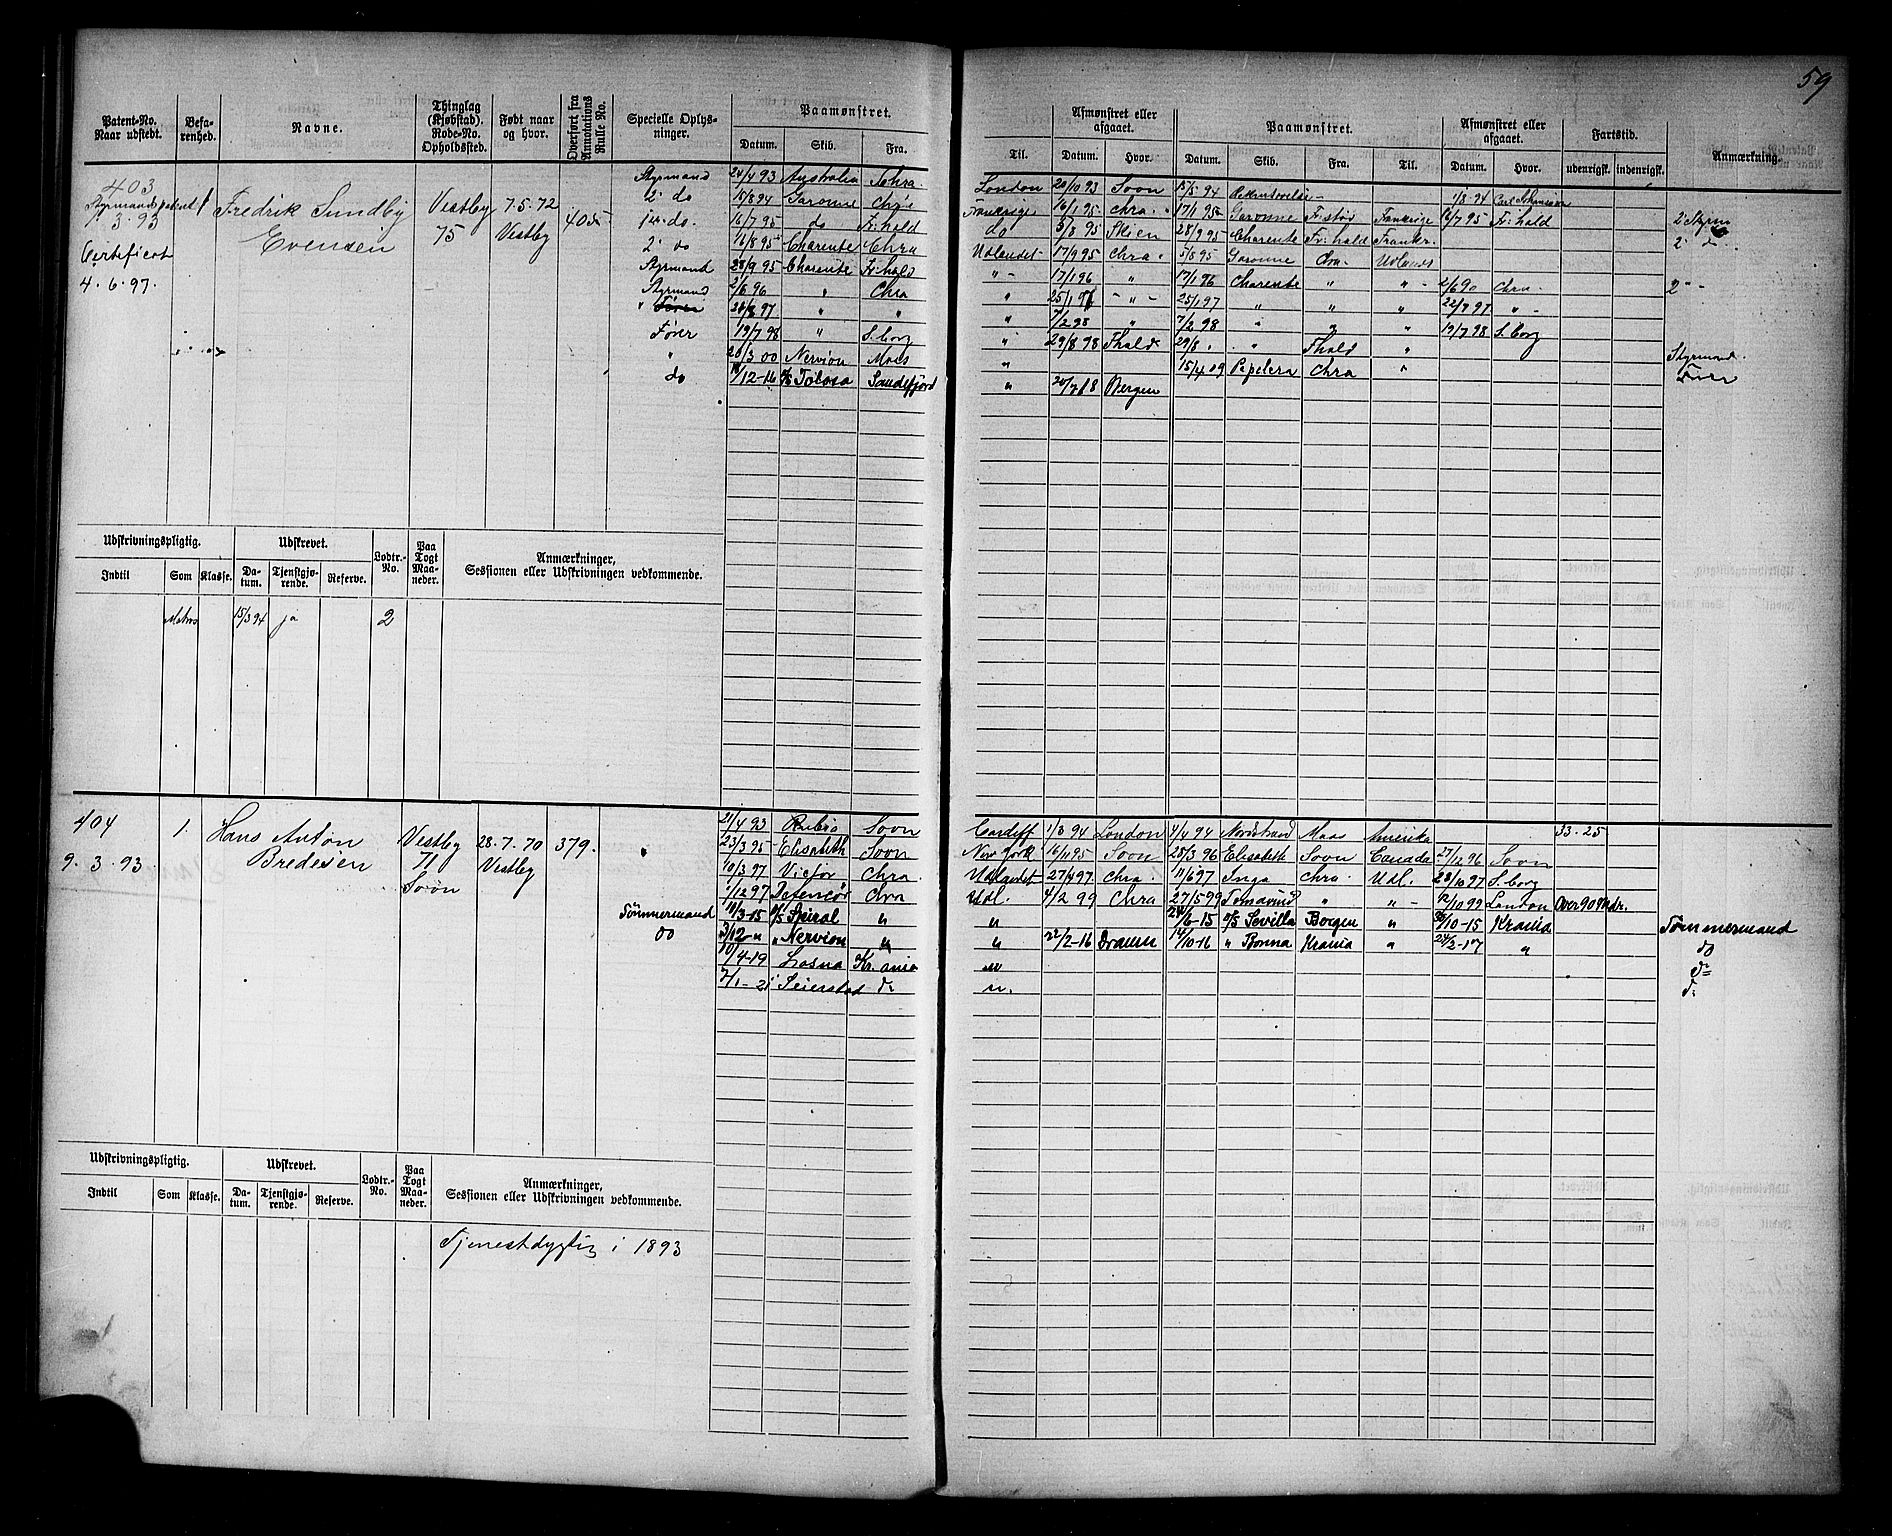 59
Patent-No. Naar udstedt.
Befarenhed.
Navne.
Thinglag (Kjøbstad). Rode-No. Opholdssted.
Født naar og hvor.
Overført fra Annotations Rulle No.
Specielle Oplysninger.
Paamønstret.
Datum. Skib. Fra.
Til.
Afmønstret eller afgaaet.
Datum. Hvor.
Paamønstret.
Datum. Skib. Fra. Til.
Afmønstret eller afgaaet.
Datum. Hvor.
Fartstid.
udenrigsk. indenrigsk.
Anmærkning.
403
Styrmandspatent
7.3.93
Certificat
4.6.97.
1
Fredrik Sundby
Evensen
Vestby
75
7-5-72
Vestby
405
Styrmand 24/4 93 Australia Chra. London 20/10 93 Soon 15/5 94 1/8 94
2. do 15/8 94 Garonne Chr's Frankrige 16/1 95 Chra. 17/1 95 Garonne Fr.stad Frankrige 14/7 95 Fr:hald 2 Styrm
1ste do. 16/7 95 do Fr:hald do 5/8 95 Skien 28/9 95 Charente Fr:hald Frankr. 2 d
2. do 16/8 95 Charente Chra Udlandet 17/9 95 Chra. 5/8 95 Garonne Chra. Udlands
Styrmand 28/9 95 Charente Fr:hald " - 17/1 96 " 17/1 96 Charente " " - 2/6 90 Chra. 2 " -
Styrmand 2/6 96 " Chra " 25/1 97 - " - 25/1 97 " " " 22/7 97 " -
" Fører 28/8 97 " " " 7/2 98 " 7/2 98 " " " 19/7 98 S.borg
Fører 19/7 98 " S.borg " 29/8 98 Fhald 29/8 " " Fhald "
" 20/3 00 Nervion Moss " 15/4 09 Papelera Chra " Styrmand.
do 18/12-16 S/S Tolosa Sandefjord " 20/7 18 Bergen Fører
Udskrivningspligtig.
Indtil Som Klasse.
Udskrevet.
Datum. Tjenstgjørende. Reserve.
Lodtr.-No.
Paa Togt Maaneder.
Anmærkninger, Sessionen eller Udskrivningen vedkommende.
Matros 15/3 94 ja 2
404
9.3.93.
1.
Hans Anton
Bredesen
Vestby
71
Soon
28-7-70
Vestby
379.
21/4 93 Rubis Soon Cardiff 1/3 94 London 4/4 94 Nordstrand Moss Amerika 33-25
23/3 95 Elisabeth Soon New York 16/11 95 Soon 25/3 96 Elisabeth Soon Canada 27/12 96 Soon
10/3 97 Victor Chra. Udlandet 27/4 97. Chra. 11/6 97 Inga Chra. Udl. 28/10 97 S.borg
1/12 97 Chra Udl. 4/2 99 Chra 27/5 99 " " - 12/10 99 London Over 90 Mdr.
Tømmermand 10/3-15 S/S Spiral " " 24/6-15 S/S Sevilla Borgen " 30/10-15 Krania Tømmermand
do 3/12-" " Nervion " " 22/2-16 Dramm 14/10-16 " Bonna Krania " 24/2-17 " do
10/4-19 Losna Kr.ania " do
7/1-21 Seierstad do " do
Udskrivningspligtig.
Indtil Som Klasse.
Udskrevet.
Datum. Tjenstgjørende. Reserve.
Lodtr.-No.
Paa Togt Maaneder.
Anmærkninger, Sessionen eller Udskrivningen vedkommende.
Tjenestdygtig i 1893